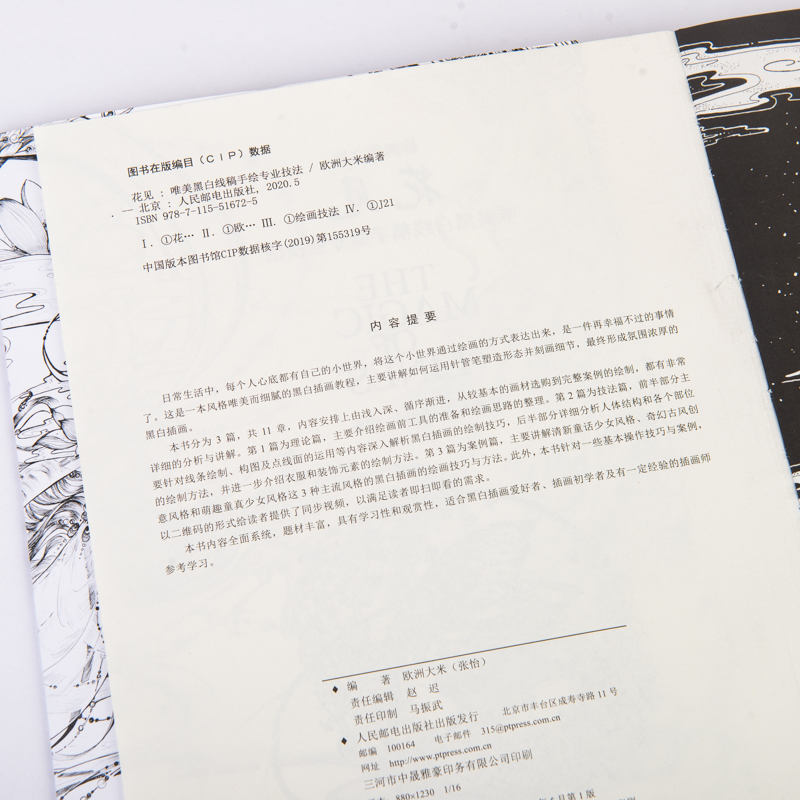 图书在版编目（CIP）数据
花见：唯美黑白线稿手绘专业技法 / 欧洲大米编著
. — 北京：人民邮电出版社，2020.5
ISBN 978-7-115-51672-5
Ⅰ. ①花… Ⅱ. ①欧… Ⅲ. ①绘画技法 Ⅳ. ①J21
中国版本图书馆CIP数据核字(2019)第155319号
内容提要
日常生活中，每个人心底都有自己的小世界，将这个小世界通过绘画的方式表达出来，是一件再幸福不过的事情
了。这是一本风格唯美而细腻的黑白插画教程，主要讲解如何运用针管笔塑造形态并刻画细节，最终形成氛围浓厚的
黑白插画。
本书分为 3 篇，共 11 章，内容安排上由浅入深、循序渐进，从较基本的画材选购到完整案例的绘制，都有非常
详细的分析与讲解。第 1 篇为理论篇，主要介绍绘画前工具的准备和绘画思路的整理。第 2 篇为技法篇，前半部分主
要针对线条绘制、构图及点线面的运用等内容深入解析黑白插画的绘制技巧，后半部分详细分析人体结构和各个部位
的绘制方法，并进一步介绍衣服和装饰元素的绘制方法。第 3 篇为案例篇，主要讲解清新童话少女风格、奇幻古风创
意风格和萌趣童真少女风格这 3 种主流风格的黑白插画的绘画技巧与方法。此外，本书针对一些基本操作技巧与案例，
以二维码的形式给读者提供了同步视频，以满足读者即扫即看的需求。
本书内容全面系统，题材丰富，具有学习性和观赏性，适合黑白插画爱好者、插画初学者及有一定经验的插画师
参考学习。
◆ 编 著 欧洲大米（张怡）
责任编辑 赵 迟
责任印制 马振武
◆ 人民邮电出版社出版发行 北京市丰台区成寿寺路 11 号
邮编 100164 电子邮件 315@ptpress.com.cn
网址 http://www.ptpress.com.cn
三河市中晟雅豪印务有限公司印刷
880×1230 1/16
月第 1 版